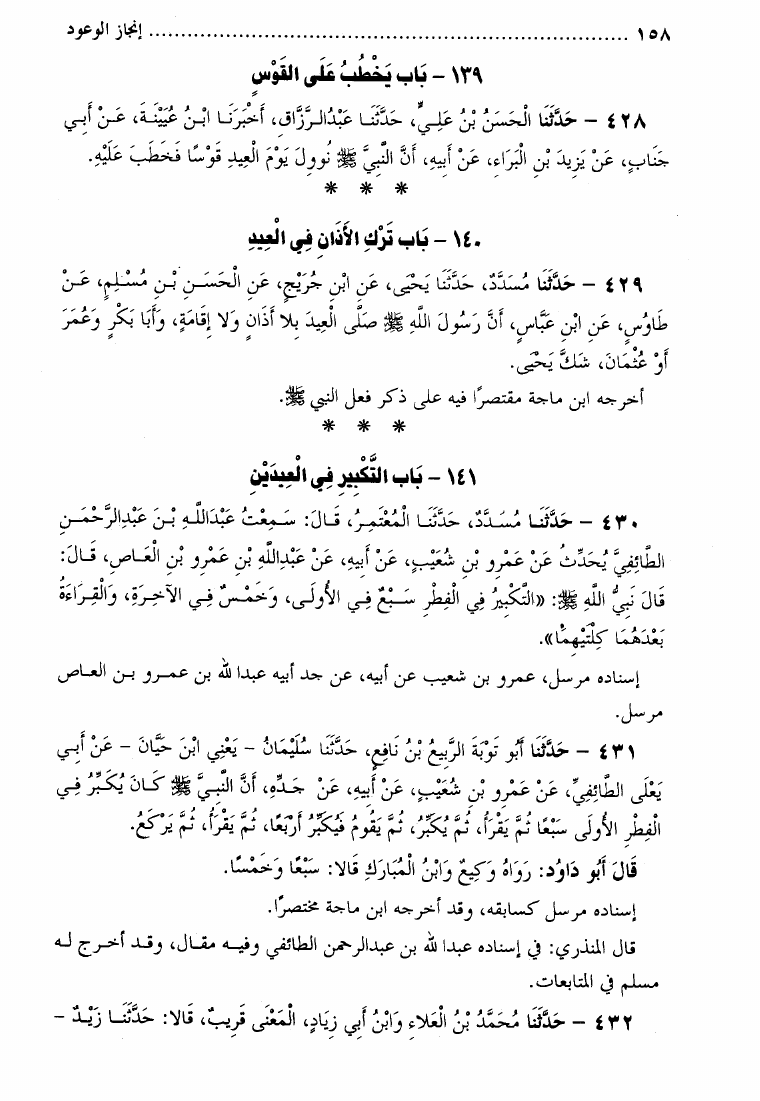 ١٥٨ ................................................................ إنجاز الوعود
١٣٩ – بَاب يَخْطُبُ عَلَى القَوْسِ
٤٢٨ – حَدَّثَنَا الْحَسَنُ بْنُ عَلِيٍّ، حَدَّثَنَا عَبْدُالرَّزَّاقِ، أَخْبَرَنَا ابْنُ عُيَيْنَةَ، عَنْ أَبِي
جَنَابٍ، عَنْ يَزِيدَ بْنِ الْبَرَاءِ، عَنْ أَبِيهِ، أَنَّ النَّبِيَّ ﷺ نُووِلَ يَوْمَ الْعِيدِ قَوْسًا فَخَطَبَ عَلَيْهِ.
* * *
١٤٠ – بَاب تَرْكِ الأَذَانِ فِي الْعِيدِ
٤٢٩ – حَدَّثَنَا مُسَدَّدٌ، حَدَّثَنَا يَحْيَى، عَنِ ابْنِ جُرَيْجٍ، عَنِ الْحَسَنِ بْنِ مُسْلِمٍ، عَنْ
طَاوُسٍ، عَنِ ابْنِ عَبَّاسٍ، أَنَّ رَسُولَ اللَّهِ ﷺ صَلَّى الْعِيدَ بِلا أَذَانٍ وَلا إِقَامَةٍ، وَأَبَا بَكْرٍ وَعُمَرَ
أَوْ عُثْمَانَ، شَكَّ يَحْيَى.
أخرجه ابن ماجة مقتصرًا فيه على ذكر فعل النبي ﷺ.
* * *
١٤١ – بَاب التَّكْبِيرِ فِي الْعِيدَيْنِ
٤٣٠ – حَدَّثَنَا مُسَدَّدٌ، حَدَّثَنَا الْمُعْتَمِرُ، قَالَ: سَمِعْتُ عَبْدَاللَّهِ بْنَ عَبْدِالرَّحْمَنِ
الطَّائِفِيَّ يُحَدِّثُ عَنْ عَمْرِو بْنِ شُعَيْبٍ، عَنْ أَبِيهِ، عَنْ عَبْدِاللَّهِ بْنِ عَمْرِو بْنِ الْعَاصِ، قَالَ:
قَالَ نَبِيُّ اللَّهِ ﷺ: «التَّكْبِيرُ فِي الْفِطْرِ سَبْعٌ فِي الأُولَى، وَخَمْسٌ فِي الآخِرَةِ، وَالْقِرَاءَةُ
بَعْدَهُمَا كِلْتَيْهِمَا».
إسناده مرسل، عمرو بن شعيب عن أبيه، عن جد أبيه عبدا لله بن عمرو بن العاص
مرسل.
٤٣١ – حَدَّثَنَا أَبُو تَوْبَةَ الرَّبِيعُ بْنُ نَافِعٍ، حَدَّثَنَا سُلَيْمَانُ – يَعْنِي ابْنَ حَيَّانَ – عَنْ أَبِي
يَعْلَى الطَّائِفِيِّ، عَنْ عَمْرِو بْنِ شُعَيْبٍ، عَنْ أَبِيهِ، عَنْ جَدِّهِ، أَنَّ النَّبِيَّ ﷺ كَانَ يُكَبِّرُ فِي
الْفِطْرِ الأُولَى سَبْعًا ثُمَّ يَقْرَأُ، ثُمَّ يُكَبِّرُ، ثُمَّ يَقُومُ فَيُكَبِّرُ أَرْبَعًا، ثُمَّ يَقْرَأُ، ثُمَّ يَرْكَعُ.
قَالَ أَبُو دَاوُد: رَوَاهُ وَكِيعٌ وَابْنُ الْمُبَارَكِ قَالا: سَبْعًا وَخَمْسًا.
إسناده مرسل كسابقه، وقد أخرجه ابن ماجة مختصرًا.
قال المنذري: في إسناده عبدا لله بن عبدالرحمن الطائفي وفيه مقال، وقد أخرج له
مسلم في المتابعات.
٤٣٢ – حَدَّثَنَا مُحَمَّدُ بْنُ الْعَلاءِ وَابْنُ أَبِي زِيَادٍ، الْمَعْنَى قَرِيبٌ، قَالا: حَدَّثَنَا زَيْدٌ –